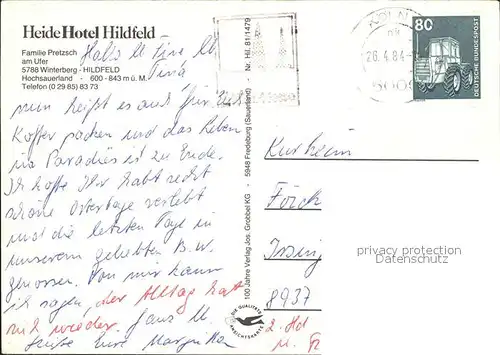 Heide Hotel Hildfeld
Familie Pretzsch
am Ufer
5788 Winterberg - HILDFELD
Hochsauerland · 600 - 843 m ü. M.
Telefon (0 29 85) 83 73
nun heißt es auch für Euch
Koffer packen und das Leben
im Paradies ist zu Ende.
Ich hoffe Ihr habt recht
schöne Ostertage verlebt
und die letzten Tage in
unserem geliebten B.W.
genossen. Von mir kann
ich sagen, der Alltag hat
mich wieder. Ganz
liebe
100 Jahre Verlag Jos. Grobbel KG · 5948 Fredeburg (Sauerland) · Nr. Hil. 81/1479
DIE QUALITÄTS
ANSICHTSKARTE
KÖLN
26.4.84
80
DEUTSCHE BUNDESPOST
Kurheim
8937
2. Hd
privacy protection
osthistory.com